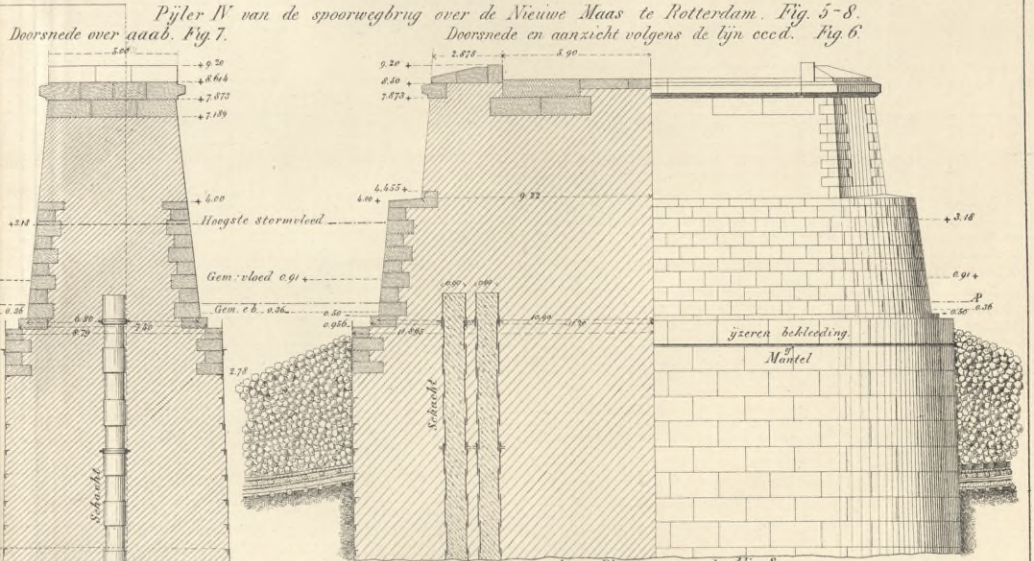 Pijler IV van de spoorwegbrug over de Nieuwe Maas te Rotterdam. Fig. 5-8.
Doorsnede over aaab. Fig. 7.
Doorsnede en aanzicht volgens de lijn cccd. Fig. 6.
5.00
+ 9.20
+ 8.614
+ 7.873
+ 7.189
+ 4.00
+3.18
Hoogste stormvloed
Gem: vloed 0.91 +
Gem. eb. 0.36
0.36
6.80
6.79
7.40
2.78
Schacht
2.878
5.90
9.20 +
8.50 +
7.873 +
4.455 +
4.00 +
9.22
0.90
0.90
0.50
0.956
10.90
11.20
10.865
Schacht
+ 3.18
0.91 +
AP
0.50
0.36
ijzeren bekleeding.
Mantel